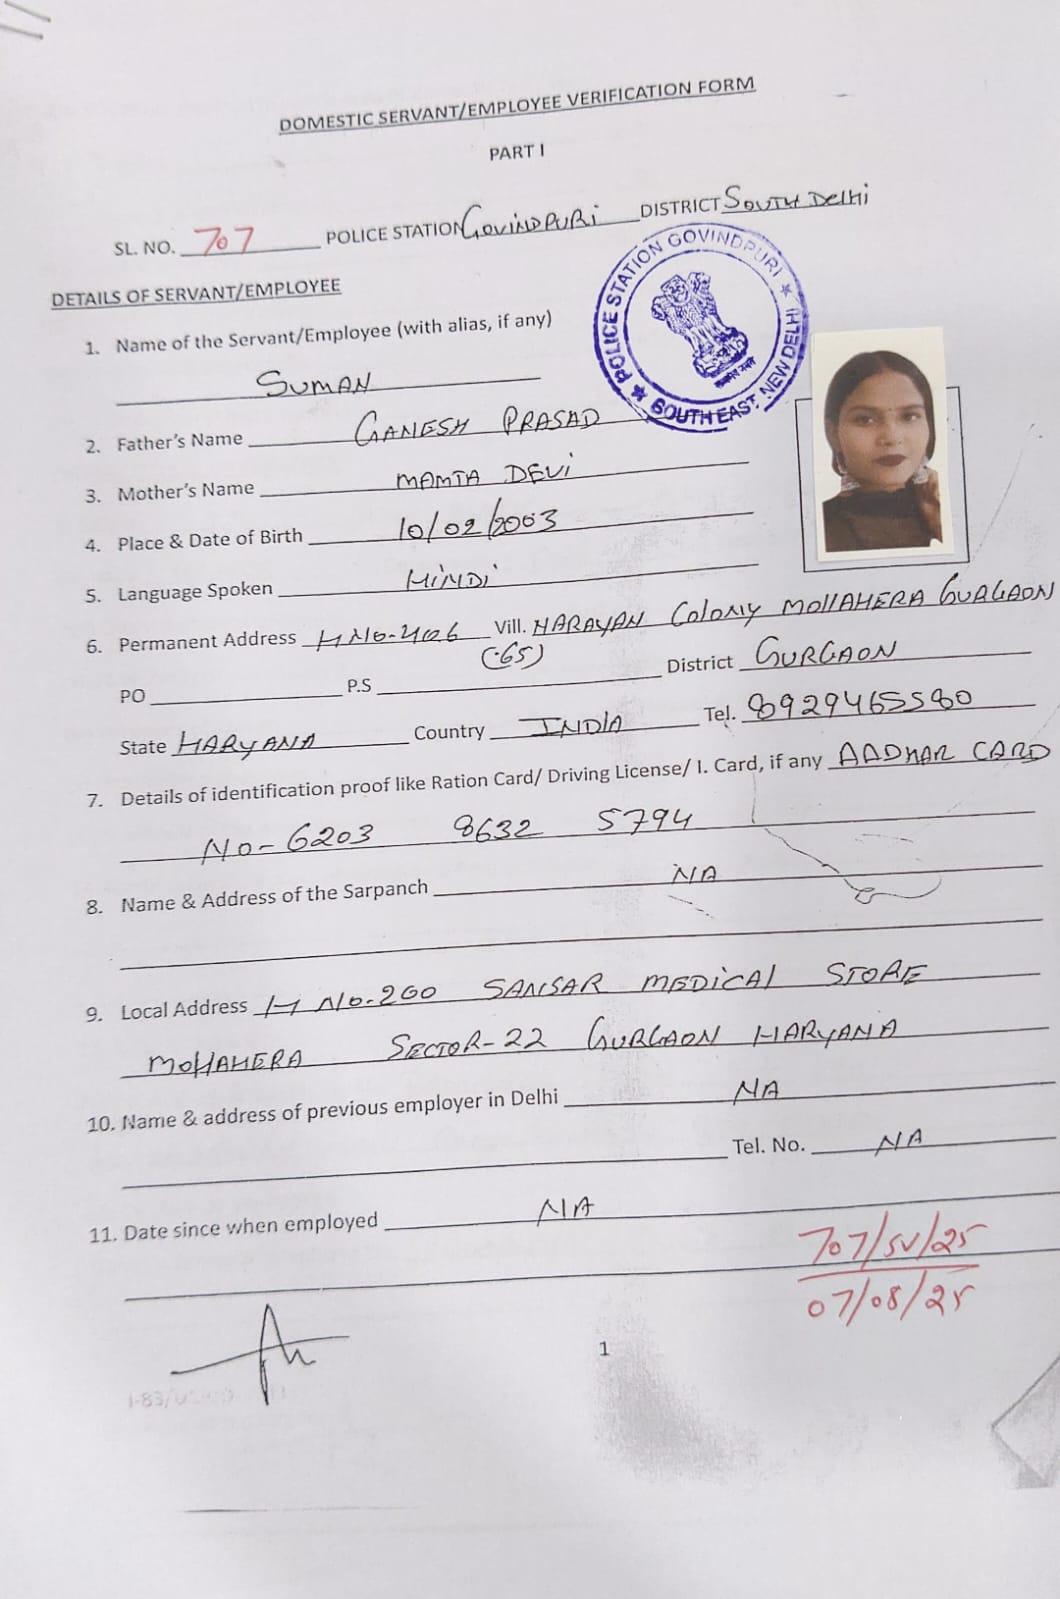 DOMESTIC SERVANT/EMPLOYEE VERIFICATION FORM
PART I
SL. NO. 707 POLICE STATION GOVINDPURI DISTRICT SOUTH DELHI
POLICE STATION GOVINDPURI ★ SOUTH EAST, NEW DELHI ★
DETAILS OF SERVANT/EMPLOYEE
1. Name of the Servant/Employee (with alias, if any)
SUMAN
2. Father's Name GANESH PRASAD
3. Mother's Name MAMTA DEVI
4. Place & Date of Birth 10/02/2003
5. Language Spoken HINDI
6. Permanent Address H NO-406 Vill. NARAYAN COLONY MOLLAHERA GURGAON
(65)
PO P.S District GURGAON
State HARYANA Country INDIA Tel. 8929465580
7. Details of identification proof like Ration Card/ Driving License/ I. Card, if any AADHAR CARD
NO- 6203 8632 5794
8. Name & Address of the Sarpanch NA
9. Local Address H NO-260 SANSAR MEDICAL STORE
MOLLAHERA SECTOR-22 GURGAON HARYANA
10. Name & address of previous employer in Delhi NA
Tel. No. NA
11. Date since when employed NA
707/SV/25
07/08/25
1